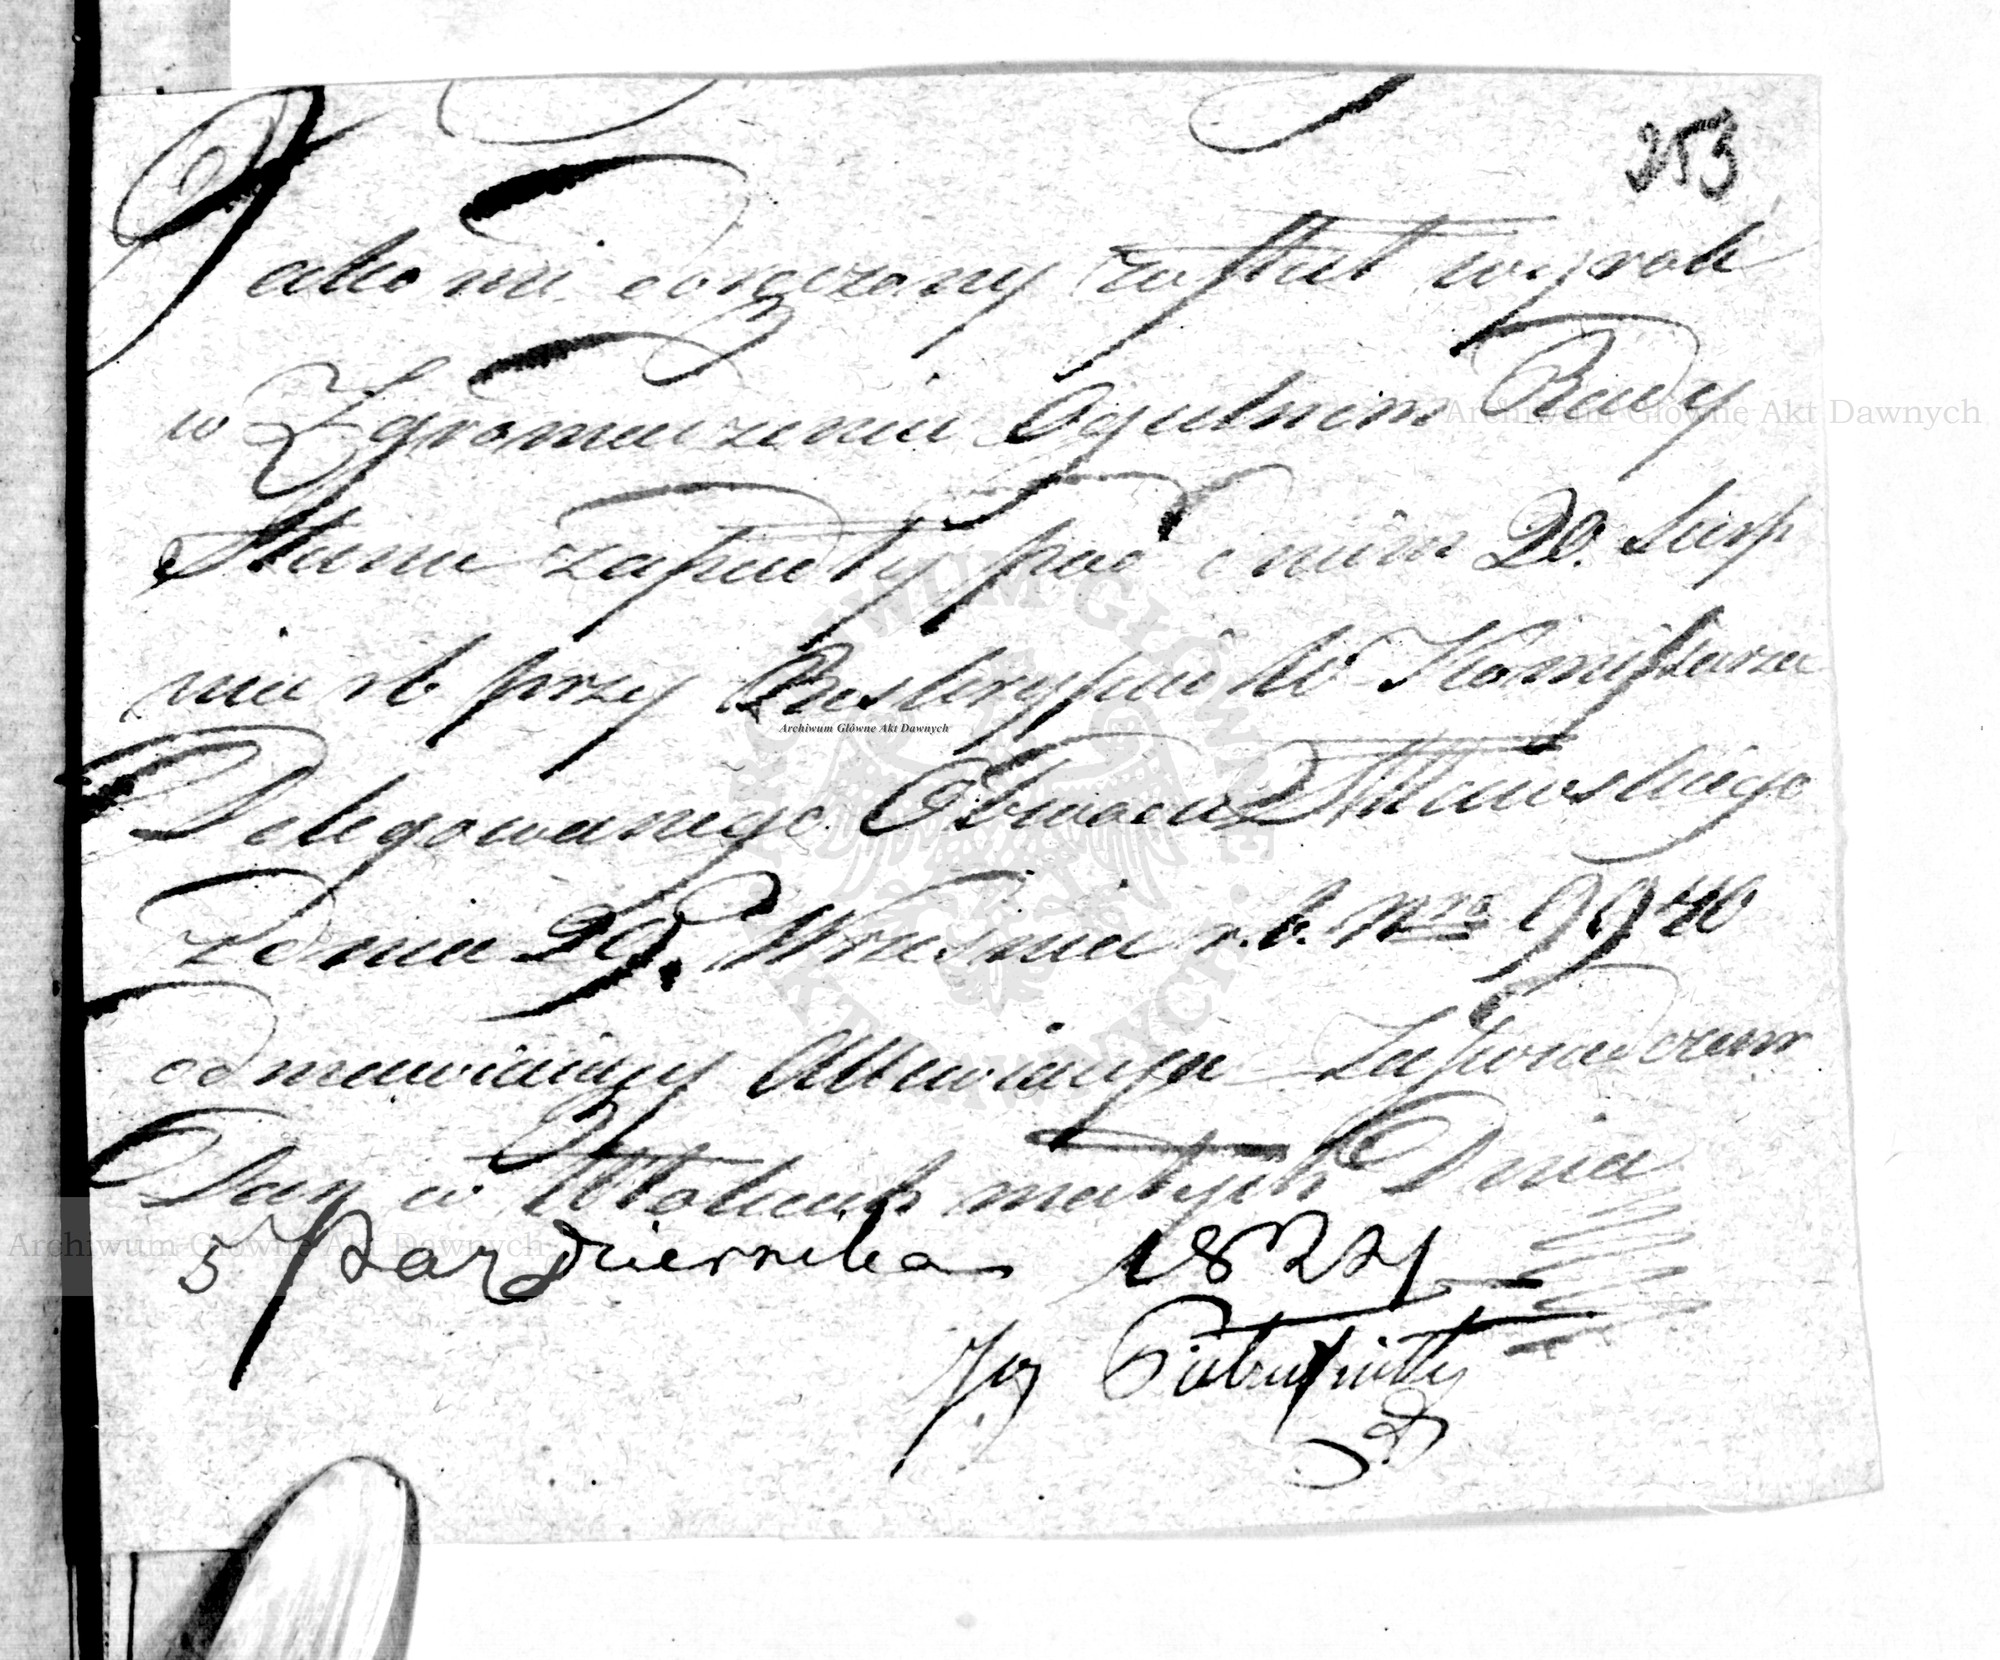 253
Jako mi doręczony został wyrok
w Zgromadzeniu Ogulnem Rady
Stanu zapadły pod dniem 20. Sierp
nia rb przy Reskrypcie W Kommissarza
Delegowanego Obwodu Mławskiego
z dnia 29. Września r.b. Nro 9940
odmawiaiący
Dan w małych Dnia
5 Pazdziernika 1824
Archiwum Główne Akt Dawnych
Archiwum Główne Akt Dawnych
Archiwum Główne Akt Dawnych
ARCHIWUM GŁÓWNE AKT DAWNYCH